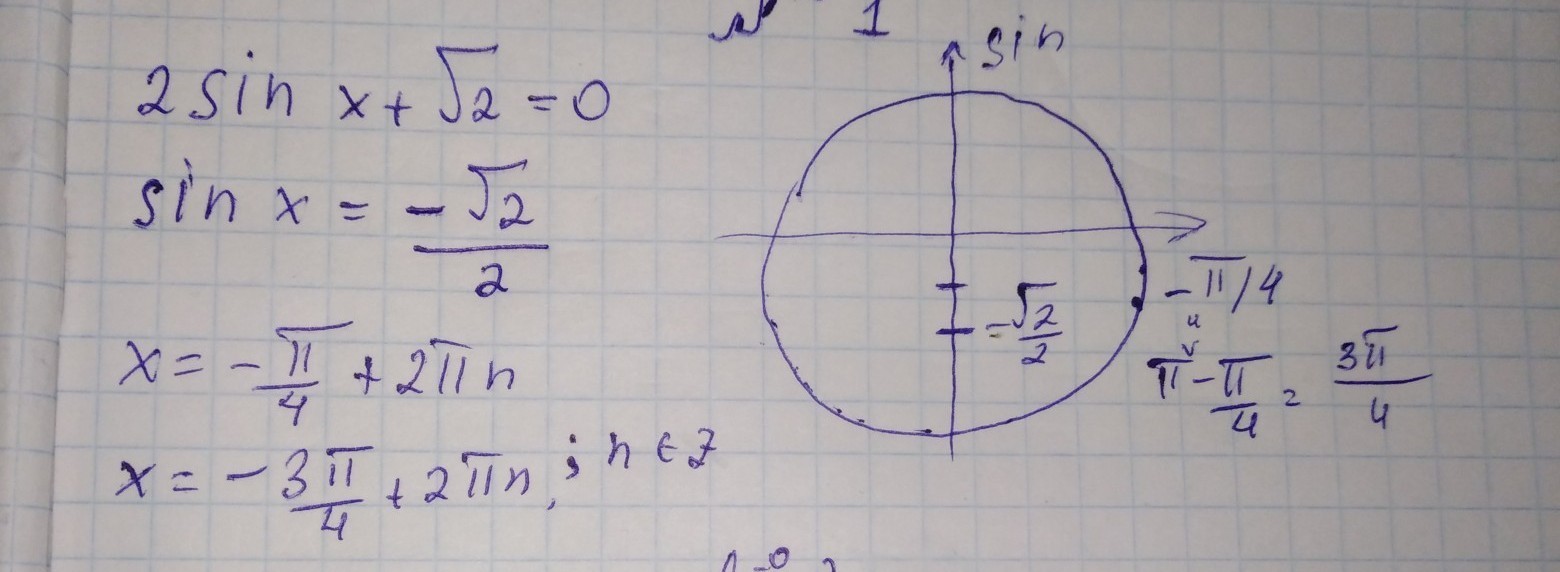 № 1
2 sin x + √2 = 0
sin x = -√2/2
x = -π/4 + 2πn
x = -3π/4 + 2πn, ; n ∈ Z
sin
-√2/2
-π/4
и
π - π/4 = 3π/4